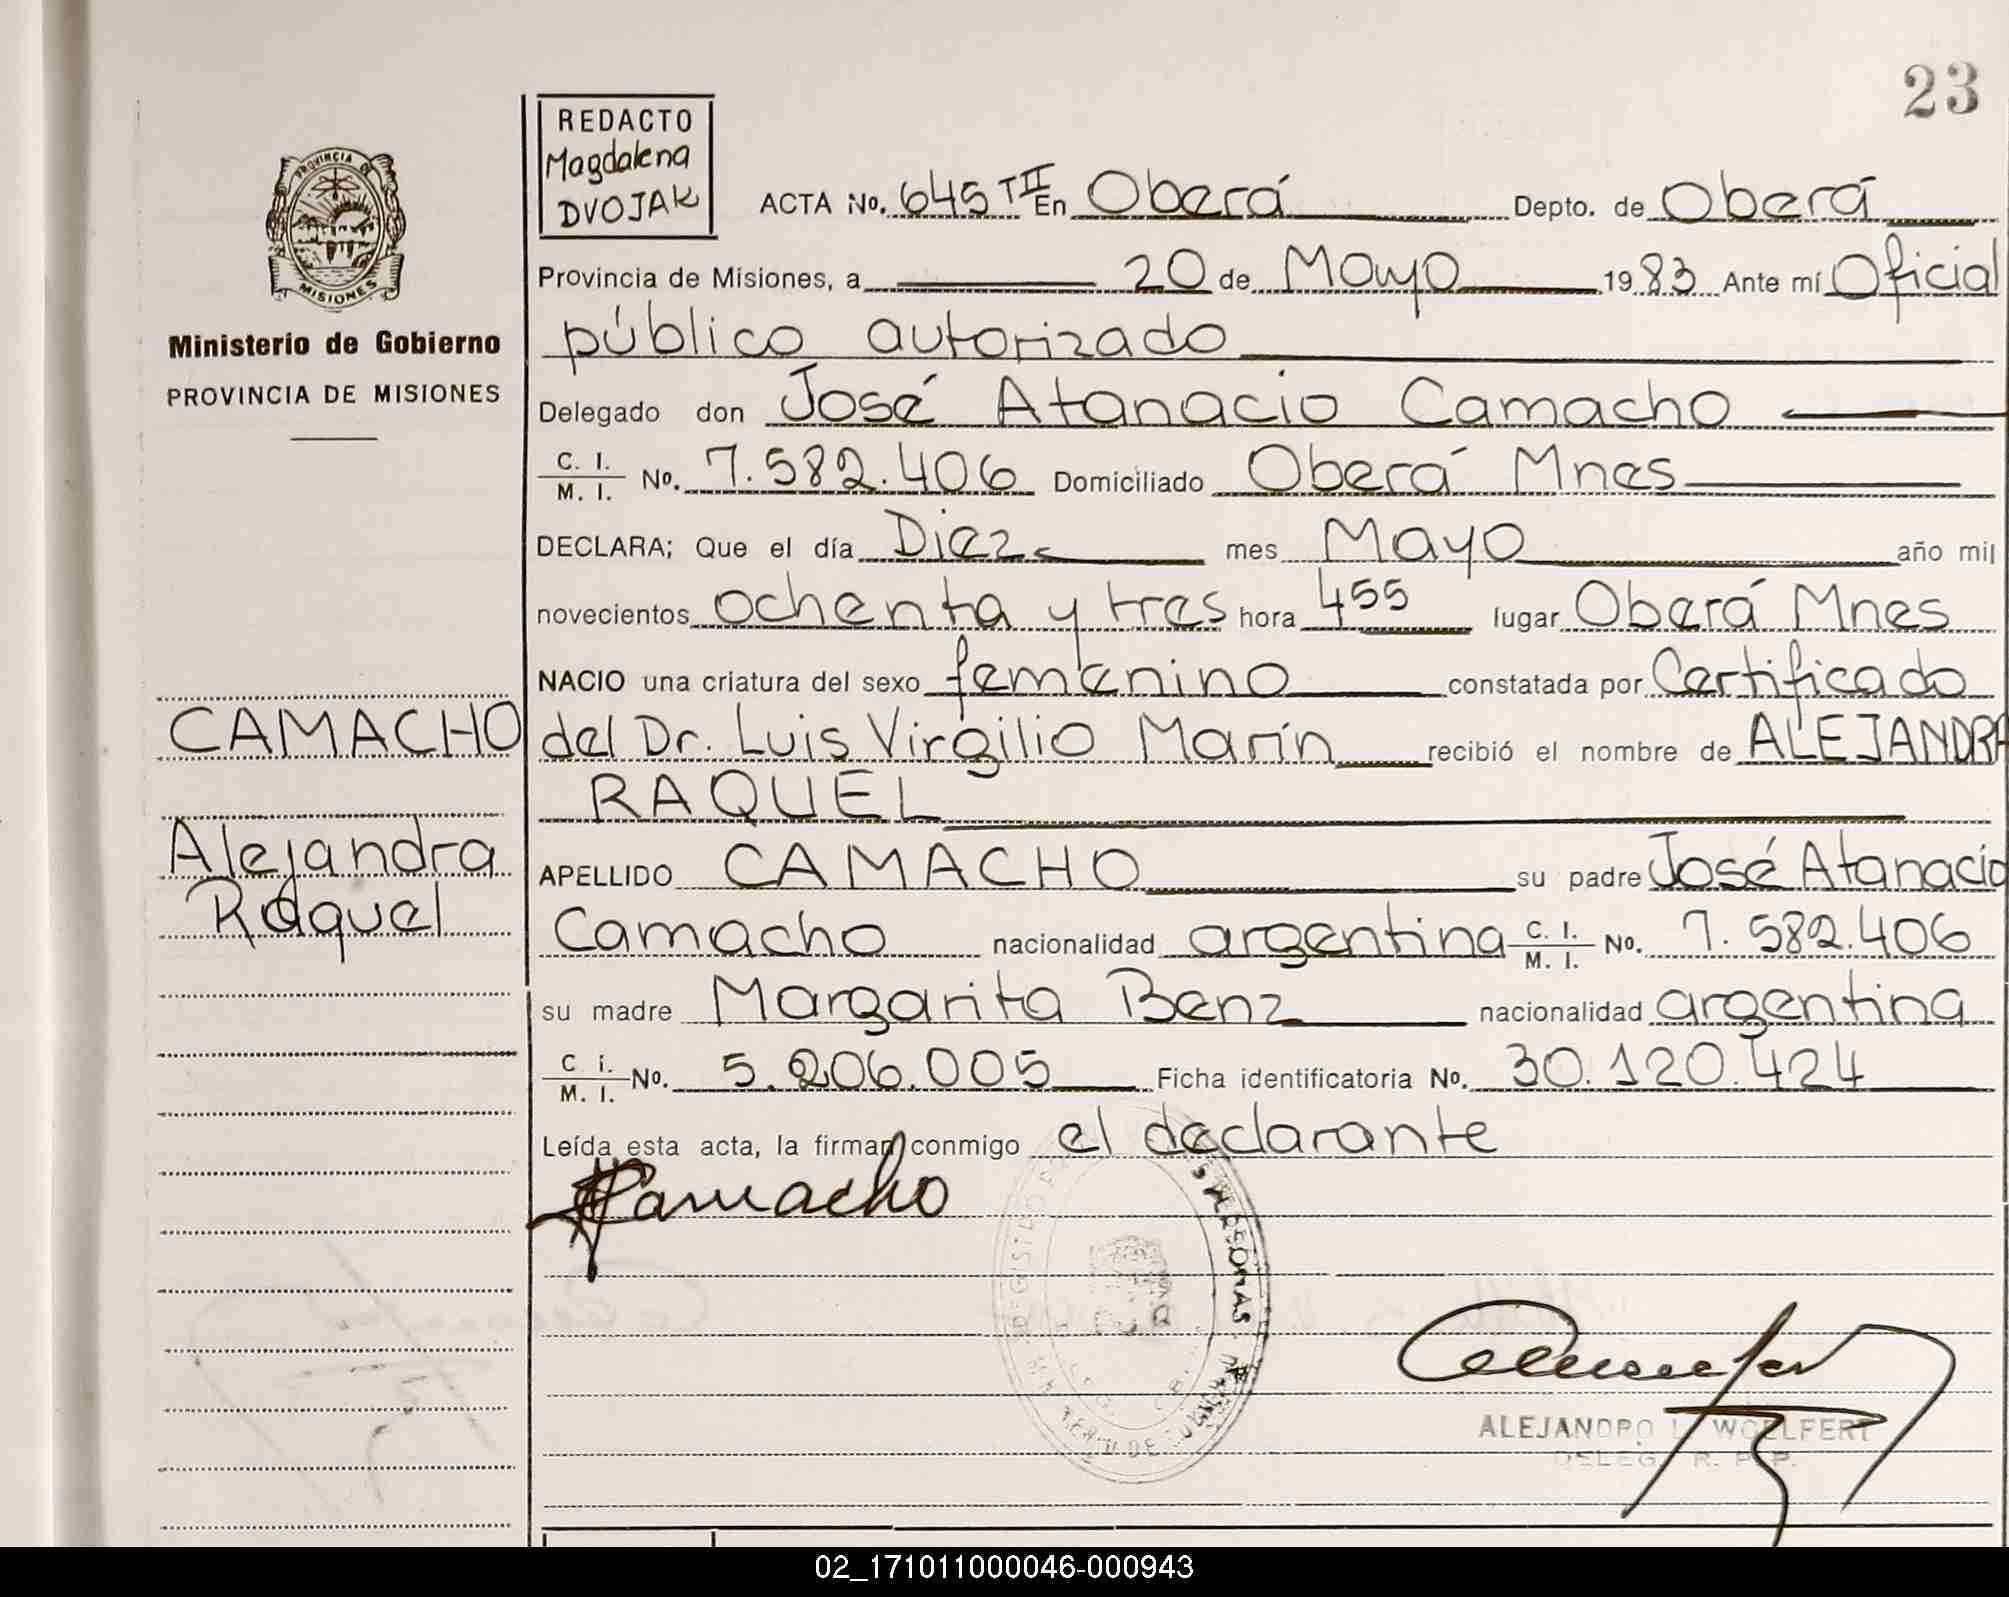 23
REDACTO
Magdalena
DVOJAK
ACTA No. 645 TII En Oberá Depto. de Oberá
Provincia de Misiones, a 20 de Mayo 1983 Ante mí Oficial
público autorizado
Delegado don José Atanacio Camacho
C. I. / M. I. No. 7.582.406 Domiciliado Oberá Mnes
DECLARA; Que el día Diez mes Mayo año mil
novecientos ochenta y tres hora 455 lugar Oberá Mnes
NACIO una criatura del sexo femenino constatada por Certificado
del Dr. Luis Virgilio Marín recibió el nombre de ALEJANDRA
RAQUEL
APELLIDO CAMACHO su padre José Atanacio
Camacho nacionalidad argentina C. I. / M. I. No. 7.582.406
su madre Margarita Benz nacionalidad argentina
C i. / M. I. No. 5.206.005 Ficha identificatoria No. 30.120.424
Leída esta acta, la firman conmigo el declarante
Camacho
ALEJANDRO L. WOELFERT
DELEG. R. P. P.
PROVINCIA DE
MISIONES
Ministerio de Gobierno
PROVINCIA DE MISIONES
CAMACHO
Alejandra
Raquel
02_171011000046-000943